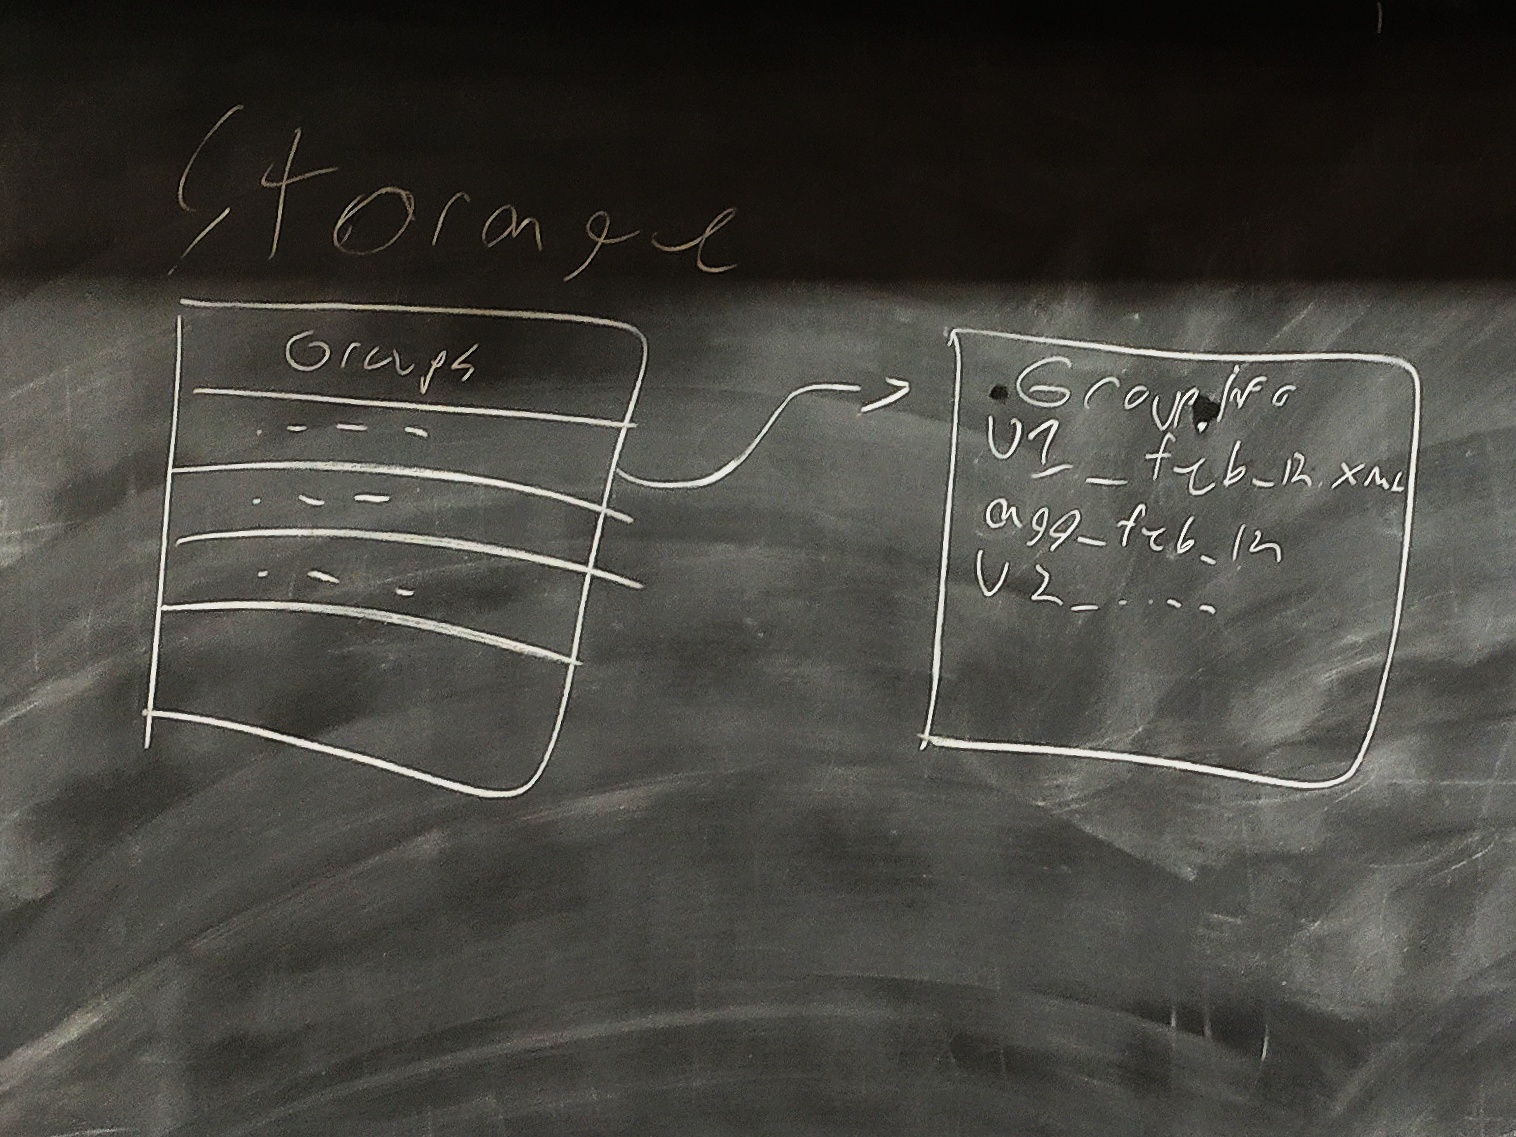 Storage
Groups
. - - -
. - -
. - -
Group.info
V1_feb_12.xml
agg_feb_12
V2_....